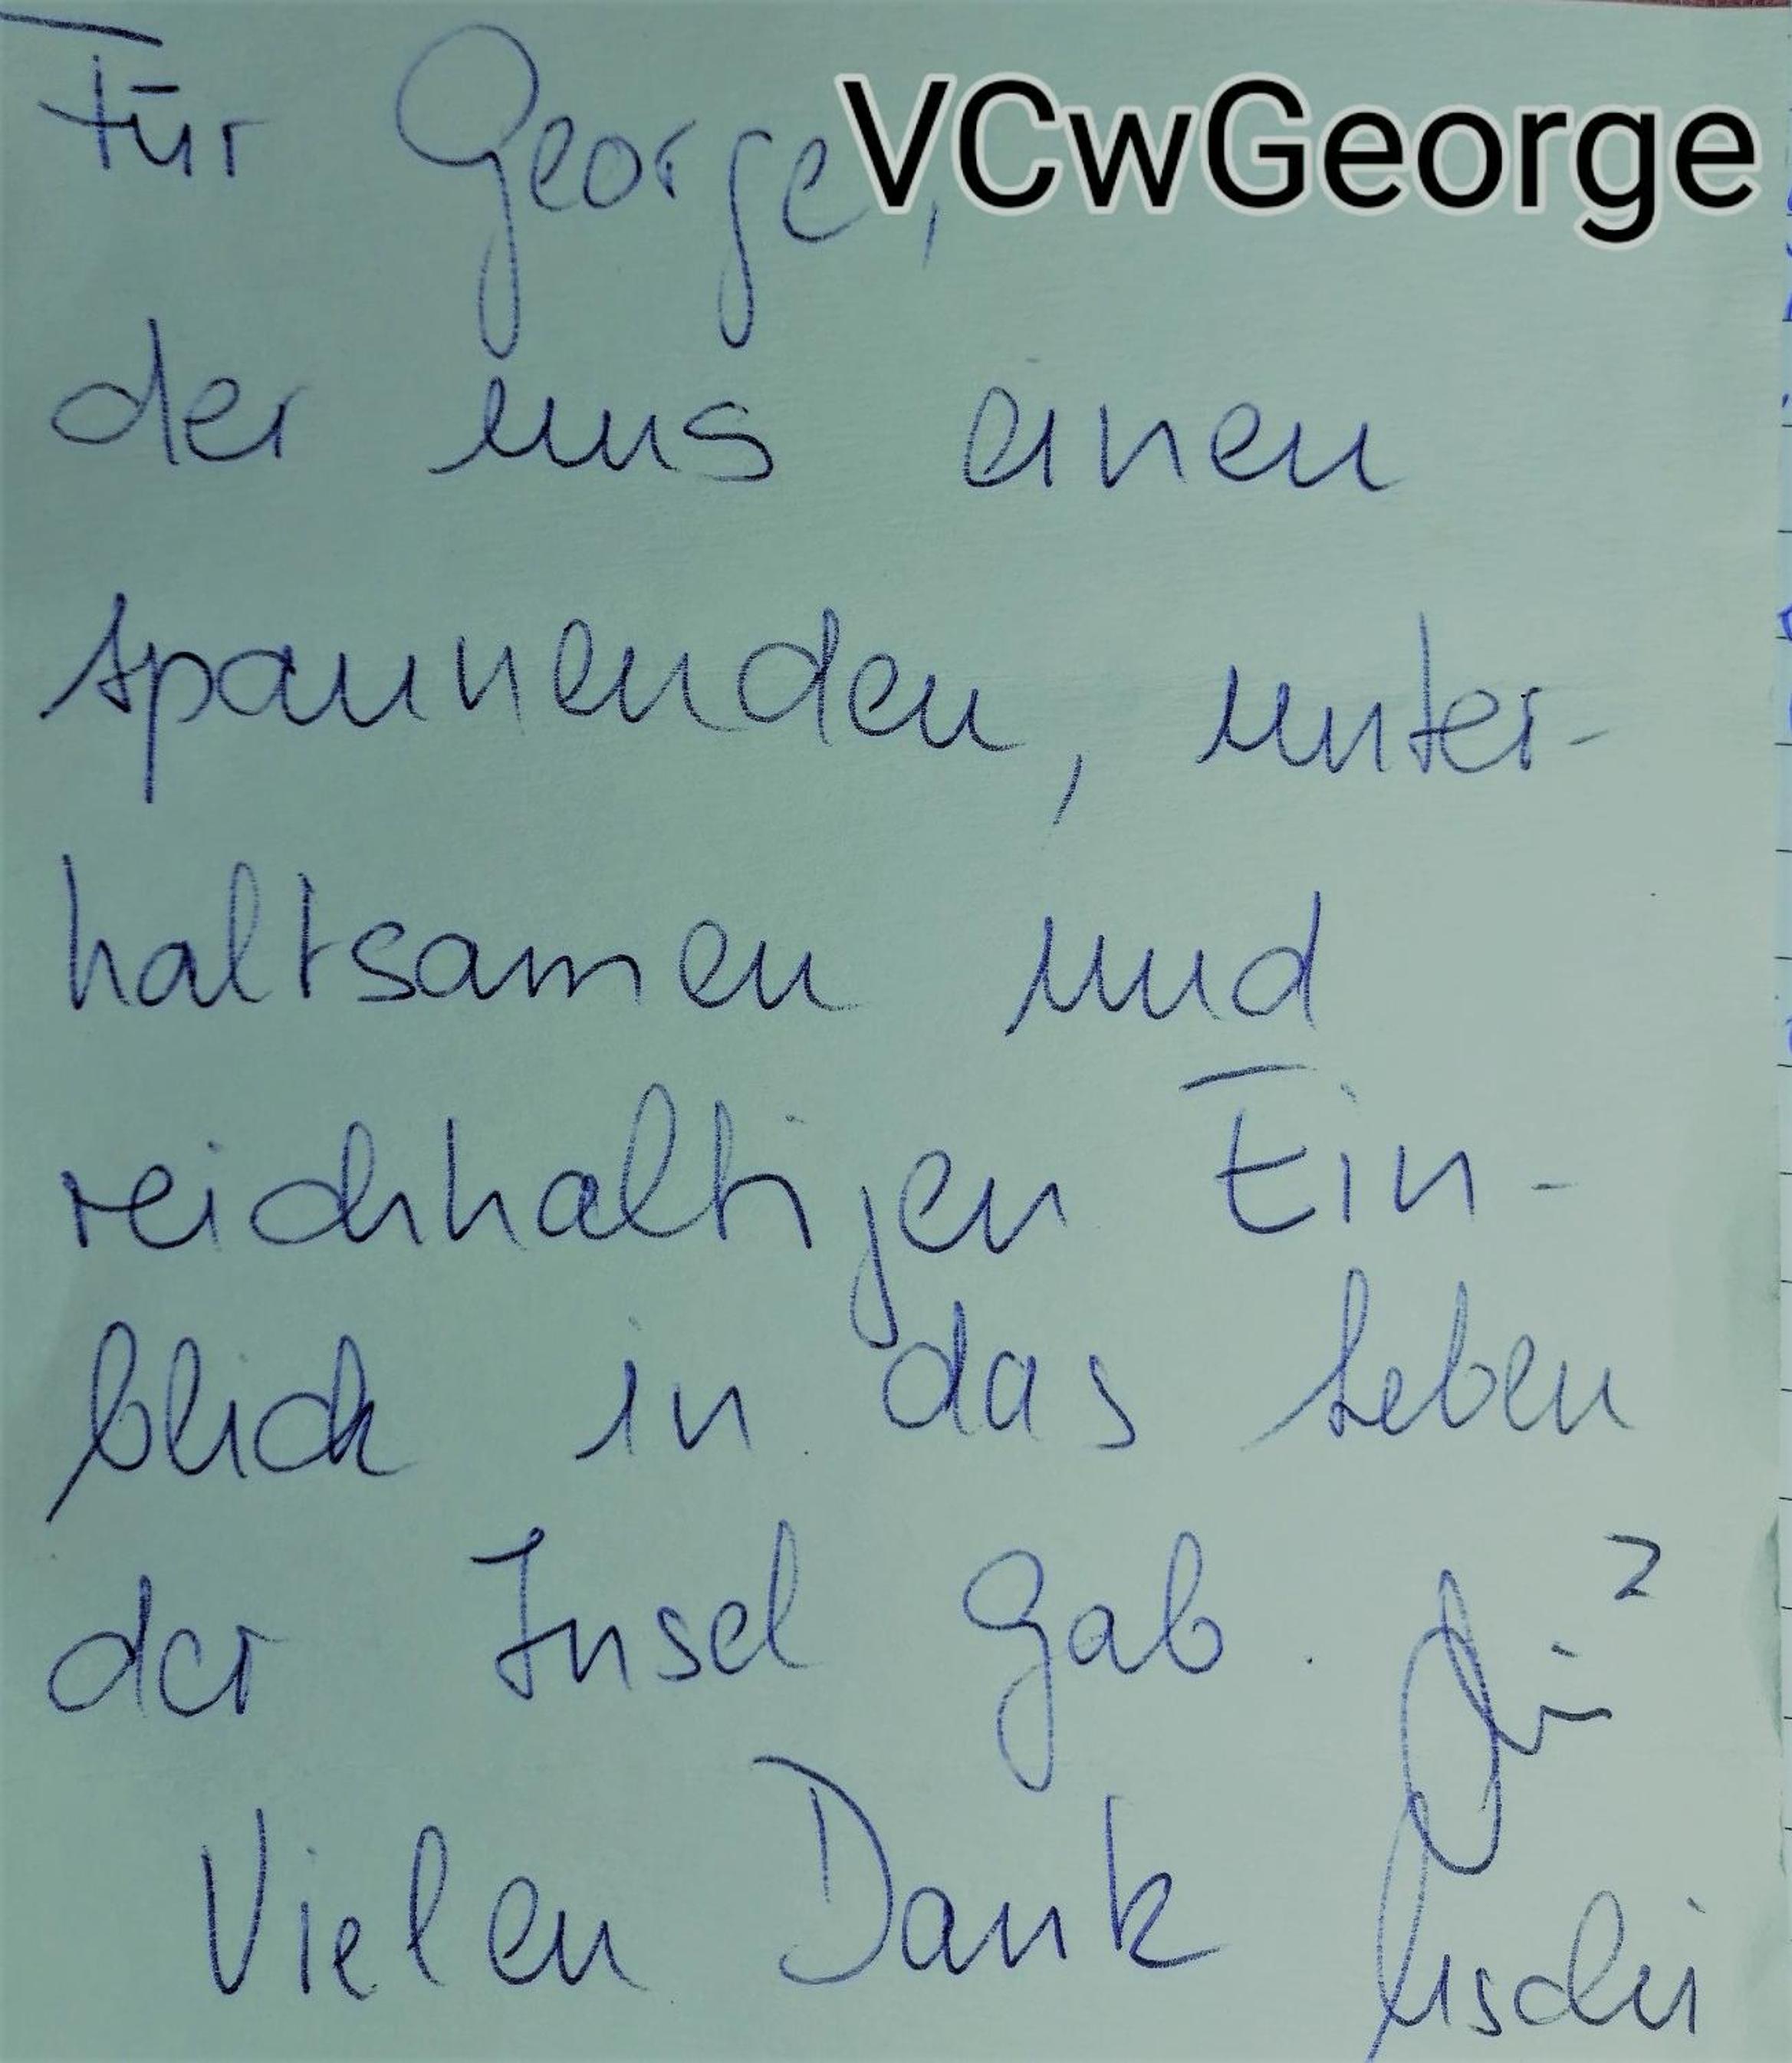 Für George, VCwGeorge
der uns einen
spannenden, unter-
haltsamen und
reichhaltigen Ein-
blick in das Leben
der Insel gab.
Vielen Dank